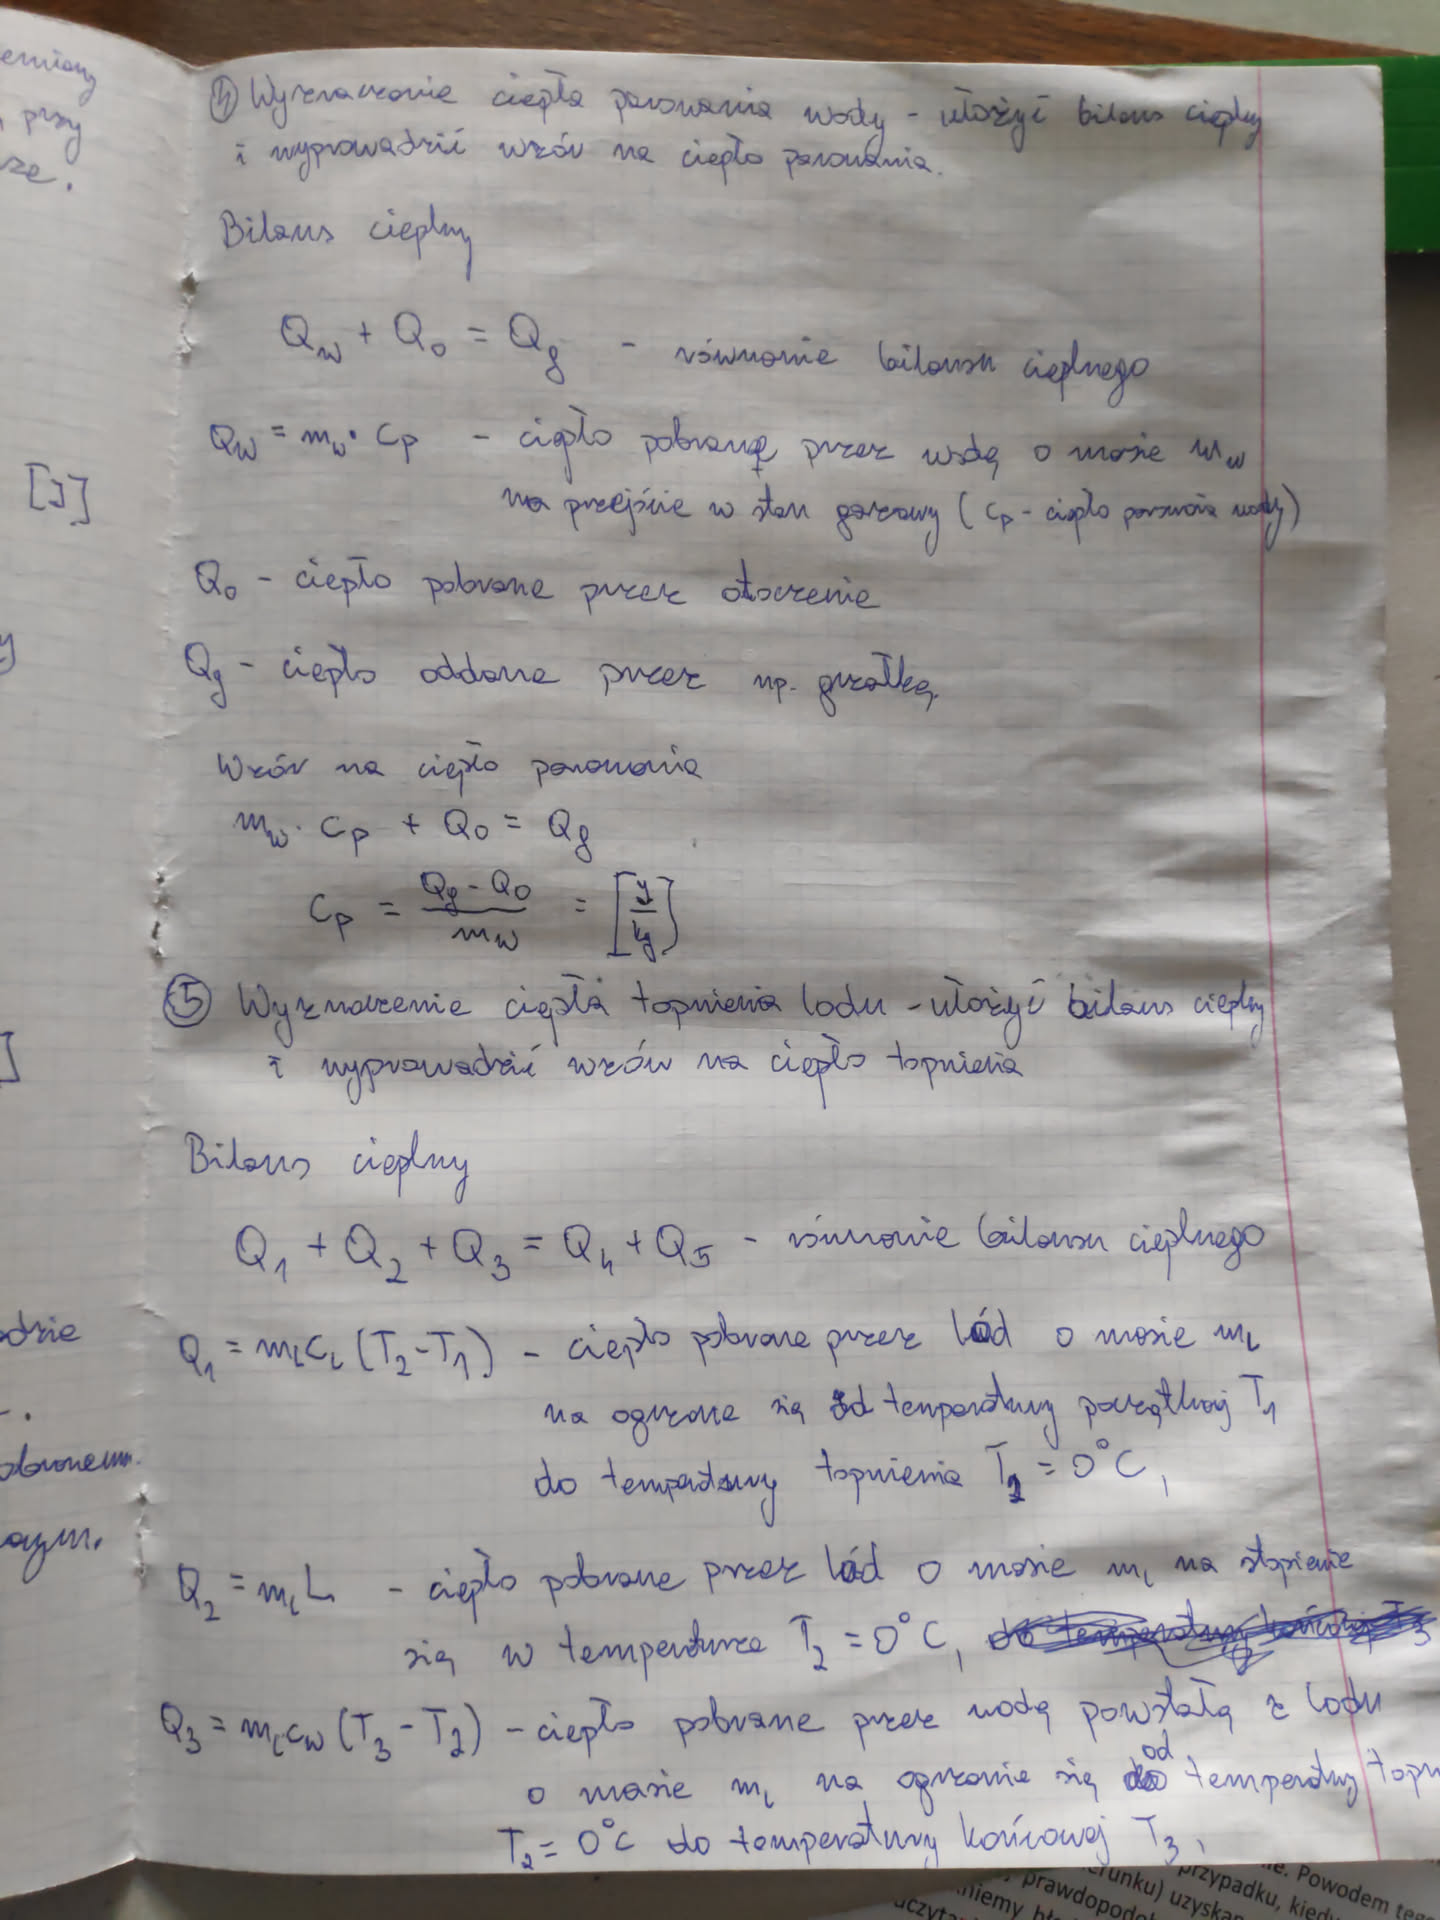 ④ Wyznaczenie ciepła parowania wody - ułożyć bilans cieplny
i wyprowadzić wzór na ciepło parowania.
Bilans cieplny
Qw + Qo = Qg - równanie bilansu cieplnego
Qw = mw · cp - ciepło pobrane przez wodę o masie mw
na przejście w stan gazowy (cp - ciepło parowania wody)
Qo - ciepło pobrane przez otoczenie
Qg - ciepło oddane przez np. grzałkę.
Wzór na ciepło parowania
mw · cp + Qo = Qg
cp = (Qg - Qo)/mw = [J/kg]
⑤ Wyznaczenie ciepła topnienia lodu - ułożyć bilans cieplny
i wyprowadzić wzór na ciepło topnienia
Bilans cieplny
Q1 + Q2 + Q3 = Q4 + Q5 - równanie bilansu cieplnego
Q1 = mLcL (T2 - T1) - ciepło pobrane przez lód o masie mL
na ogrzane się od temperatury początkowej T1
do temperatury topnienia T2 = 0°C,
Q2 = mLL - ciepło pobrane przez lód o masie mL na stopienie
się w temperaturze T2 = 0°C, do temperatury końcowej T3
Q3 = mLcw (T3 - T2) - ciepło pobrane przez wodę powstałą z lodu
o masie mL na ogrzanie się od temperatury topn
T2 = 0°C do temperatury końcowej T3,
emiany
przy
sze.
[J]
y
]
odzie
-.
obranemu.
azym.
ie. Powodem tego
przypadku, kiedy
erunku) uzyskan
prawdopodob
niemy bł
uczyta